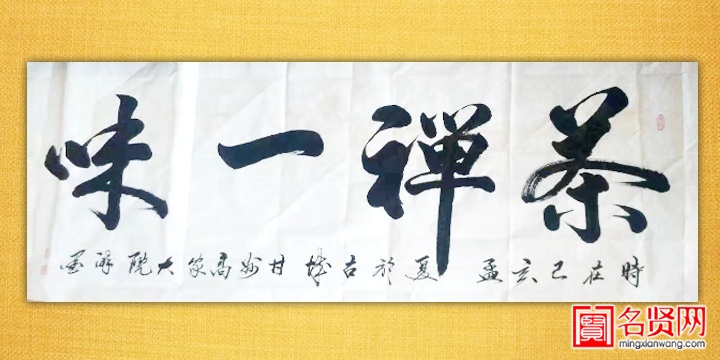 茶禅一味
時在己亥孟夏於古城甘州高家大院
名贤网
mingxianwang.com